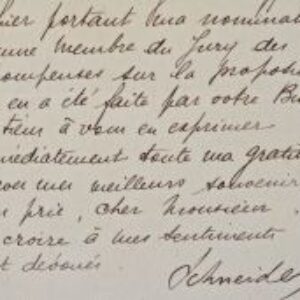 hier portant ma nomina
membre du Jury des
compenses sur la propos
en a été faite par votre Bu
tiens à vous en exprimer
médiatement toute ma grati
mes meilleurs souvenir
prie, cher Monsieur
croire à mes sentiments
t dévoués
Schneide